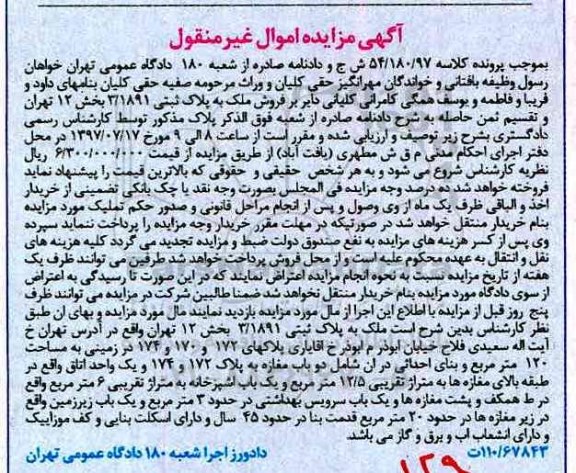 آگهی مزایده اموال غیر منقول
بموجب پرونده کلاسه ۵۴/۱۸۰/۹۷ ش ج و دادنامه صادره از شعبه ۱۸۰ دادگاه عمومی تهران خواهان
رسول وظیفه بافتانی و خواندگان مهرانگیز حقی کلیان و وراث مرحومه صفیه حقی کلیان بنامهای داود و
فریبا و فاطمه و یوسف همگی کامرانی کلیانی دایر بر فروش ملک به پلاک ثبتی ۳/۱۸۹۱ بخش ۱۲ تهران
و تقسیم ثمن حاصله به شرح دادنامه صادره از شعبه فوق الذکر پلاک مذکور توسط کارشناس رسمی
دادگستری بشرح زیر توصیف و ارزیابی شده و مقرر است از ساعت ۸ الی ۹ مورخ ۱۳۹۷/۰۷/۱۷ در محل
دفتر اجرای احکام مدنی م ق ش مطهری (یافت آباد) از طریق مزایده از قیمت ۶/۳۰۰/۰۰۰/۰۰۰ ریال
نظریه کارشناس شروع می شود و به هر شخص حقیقی و حقوقی که بالاترین قیمت را پیشنهاد نماید
فروخته خواهد شد ده درصد وجه مزایده فی المجلس بصورت وجه نقد یا چک بانکی تضمینی از خریدار
اخذ و الباقی ظرف یک ماه از وی وصول و پس از انجام مراحل قانونی و صدور حکم تملیک مورد مزایده
بنام خریدار منتقل خواهد شد در صورتیکه در مهلت مقرر خریدار وجه مزایده را پرداخت ننماید سپرده
وی پس از کسر هزینه های مزایده به نفع صندوق دولت ضبط و مزایده تجدید می گردد کلیه هزینه های
نقل و انتقال به عهده محکوم علیه است و از محل فروش پرداخت خواهد شد طرفین می توانند ظرف یک
هفته از تاریخ مزایده نسبت به نحوه انجام مزایده اعتراض نمایند که در این صورت تا رسیدگی به اعتراض
از سوی دادگاه مورد مزایده بنام خریدار منتقل نخواهد شد ضمنا طالبین شرکت در مزایده می توانند ظرف
پنج روز قبل از مزایده با اطلاع این اجرا از مال مورد مزایده بازدید نمایند مال مورد مزایده و بهای ان طبق
نظر کارشناس بدین شرح است ملک به پلاک ثبتی ۳/۱۸۹۱ بخش ۱۲ تهران واقع در آدرس تهران خ
آیت اله سعیدی فلاح خیابان ابوذر م ابوذر خ اقاباری پلاکهای ۱۷۲ و ۱۷۰ و ۱۷۴ در زمینی به مساحت
۱۲۰ متر مربع و بنای احداثی در ان شامل دو باب مغازه به پلاک ۱۷۲ و ۱۷۴ و یک واحد اتاق واقع در
طبقه بالای مغازه ها به متراژ تقریبی ۱۲/۵ متر مربع و یک باب اشپزخانه به متراژ تقریبی ۶ متر مربع واقع
در ط همکف و پشت مغازه ها و یک باب سرویس بهداشتی در حدود ۳ متر مربع و یک باب زیرزمین واقع
در زیر مغازه ها در حدود ۲۰ متر مربع قدمت بنا در حدود ۴۵ سال و دارای اسکلت بنایی و کف موزاییک
و دارای انشعاب اب و برق و گاز می باشد.
۱۱۰/۶۷۸۴۳ت
دادورز اجرا شعبه ۱۸۰ دادگاه عمومی تهران
۱۲۹